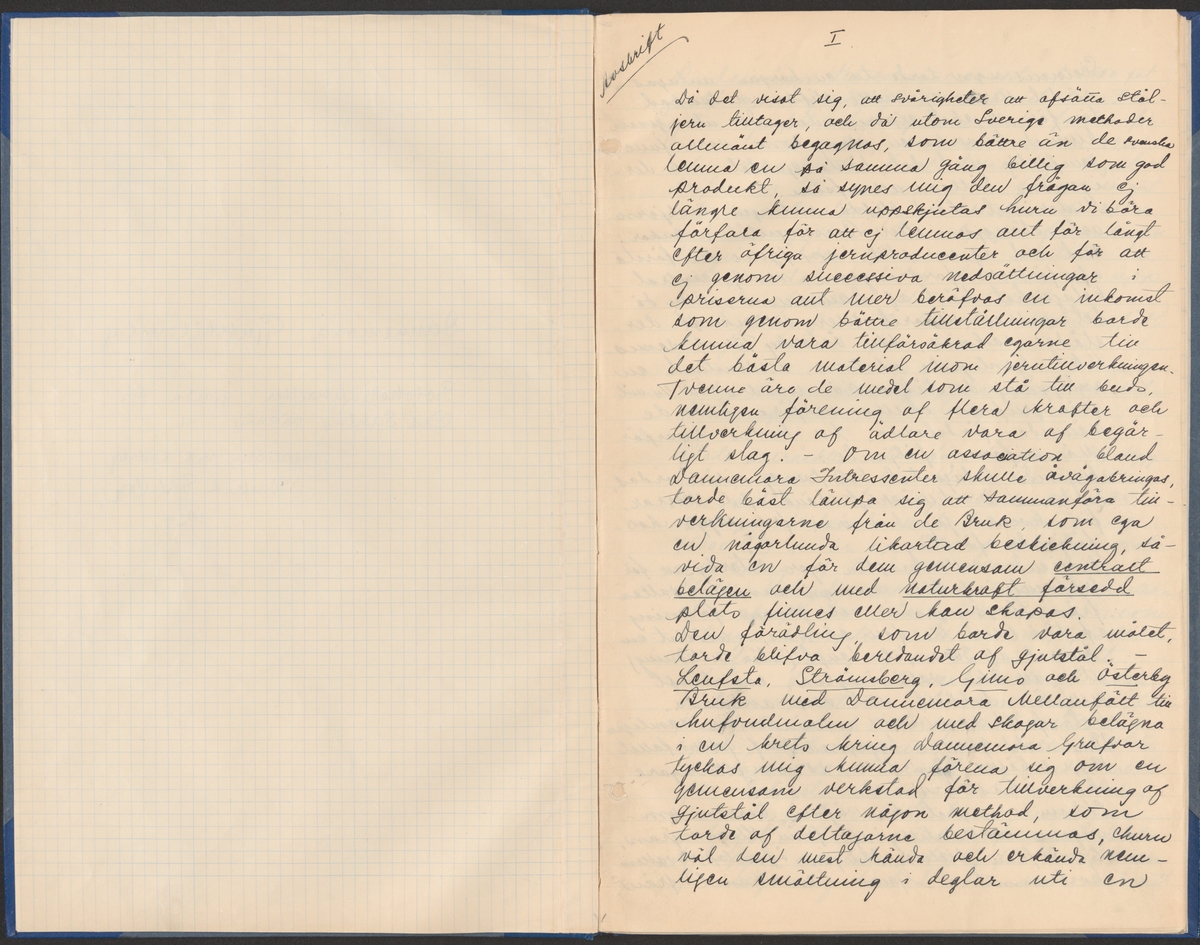 Avskrift
I
Då det visat sig, att svårigheter att afsätta stål-
jern tilltager, och då utom Sverige methoder
allmänt begagnas, som bättre än de svenska
lemna en på samma gång billig som god
produkt, så synes mig den frågan ej
längre kunna uppskjutas huru vi böra
förfara för att ej lemnas allt för långt
efter öfriga jernproducenter och för att
ej genom successiva nedsättningar i
priserna allt mer beröfvas en inkomst
som genom bättre tillställningar borde
kunna vara tillförsäkrad egarne till
det bästa material inom jerntillverkningen.
Tvenne äro de medel som stå till buds,
nemligen förening af flera krafter och
tillverkning af ädlare vara af begär-
ligt slag. - Om en association bland
Dannemora Intressenter skulle åvägabringas,
torde bäst lämpa sig att sammanföra till-
verkningarne från de Bruk, som ega
en någorlunda likartad beskickning, så-
vida en för dem gemensam centralt
belägen och med naturkraft försedd
plats finnes eller kan skapas.
Den förädling, som borde vara målet,
torde blifva beredandet af gjutstål. -
Leufsta, Strömsberg, Gimo och Österby
Bruk med Dannemora Mellanfält till
hufvudmalm och med skogar belägna
i en krets kring Dannemora Grufvor
tyckas mig kunna förena sig om en
gemensam verkstad för tillverkning af
gjutstål efter någon method, som
torde af deltagarne bestämmas, ehuru
väl den mest kända och erkända nem-
ligen smältning i deglar uti en